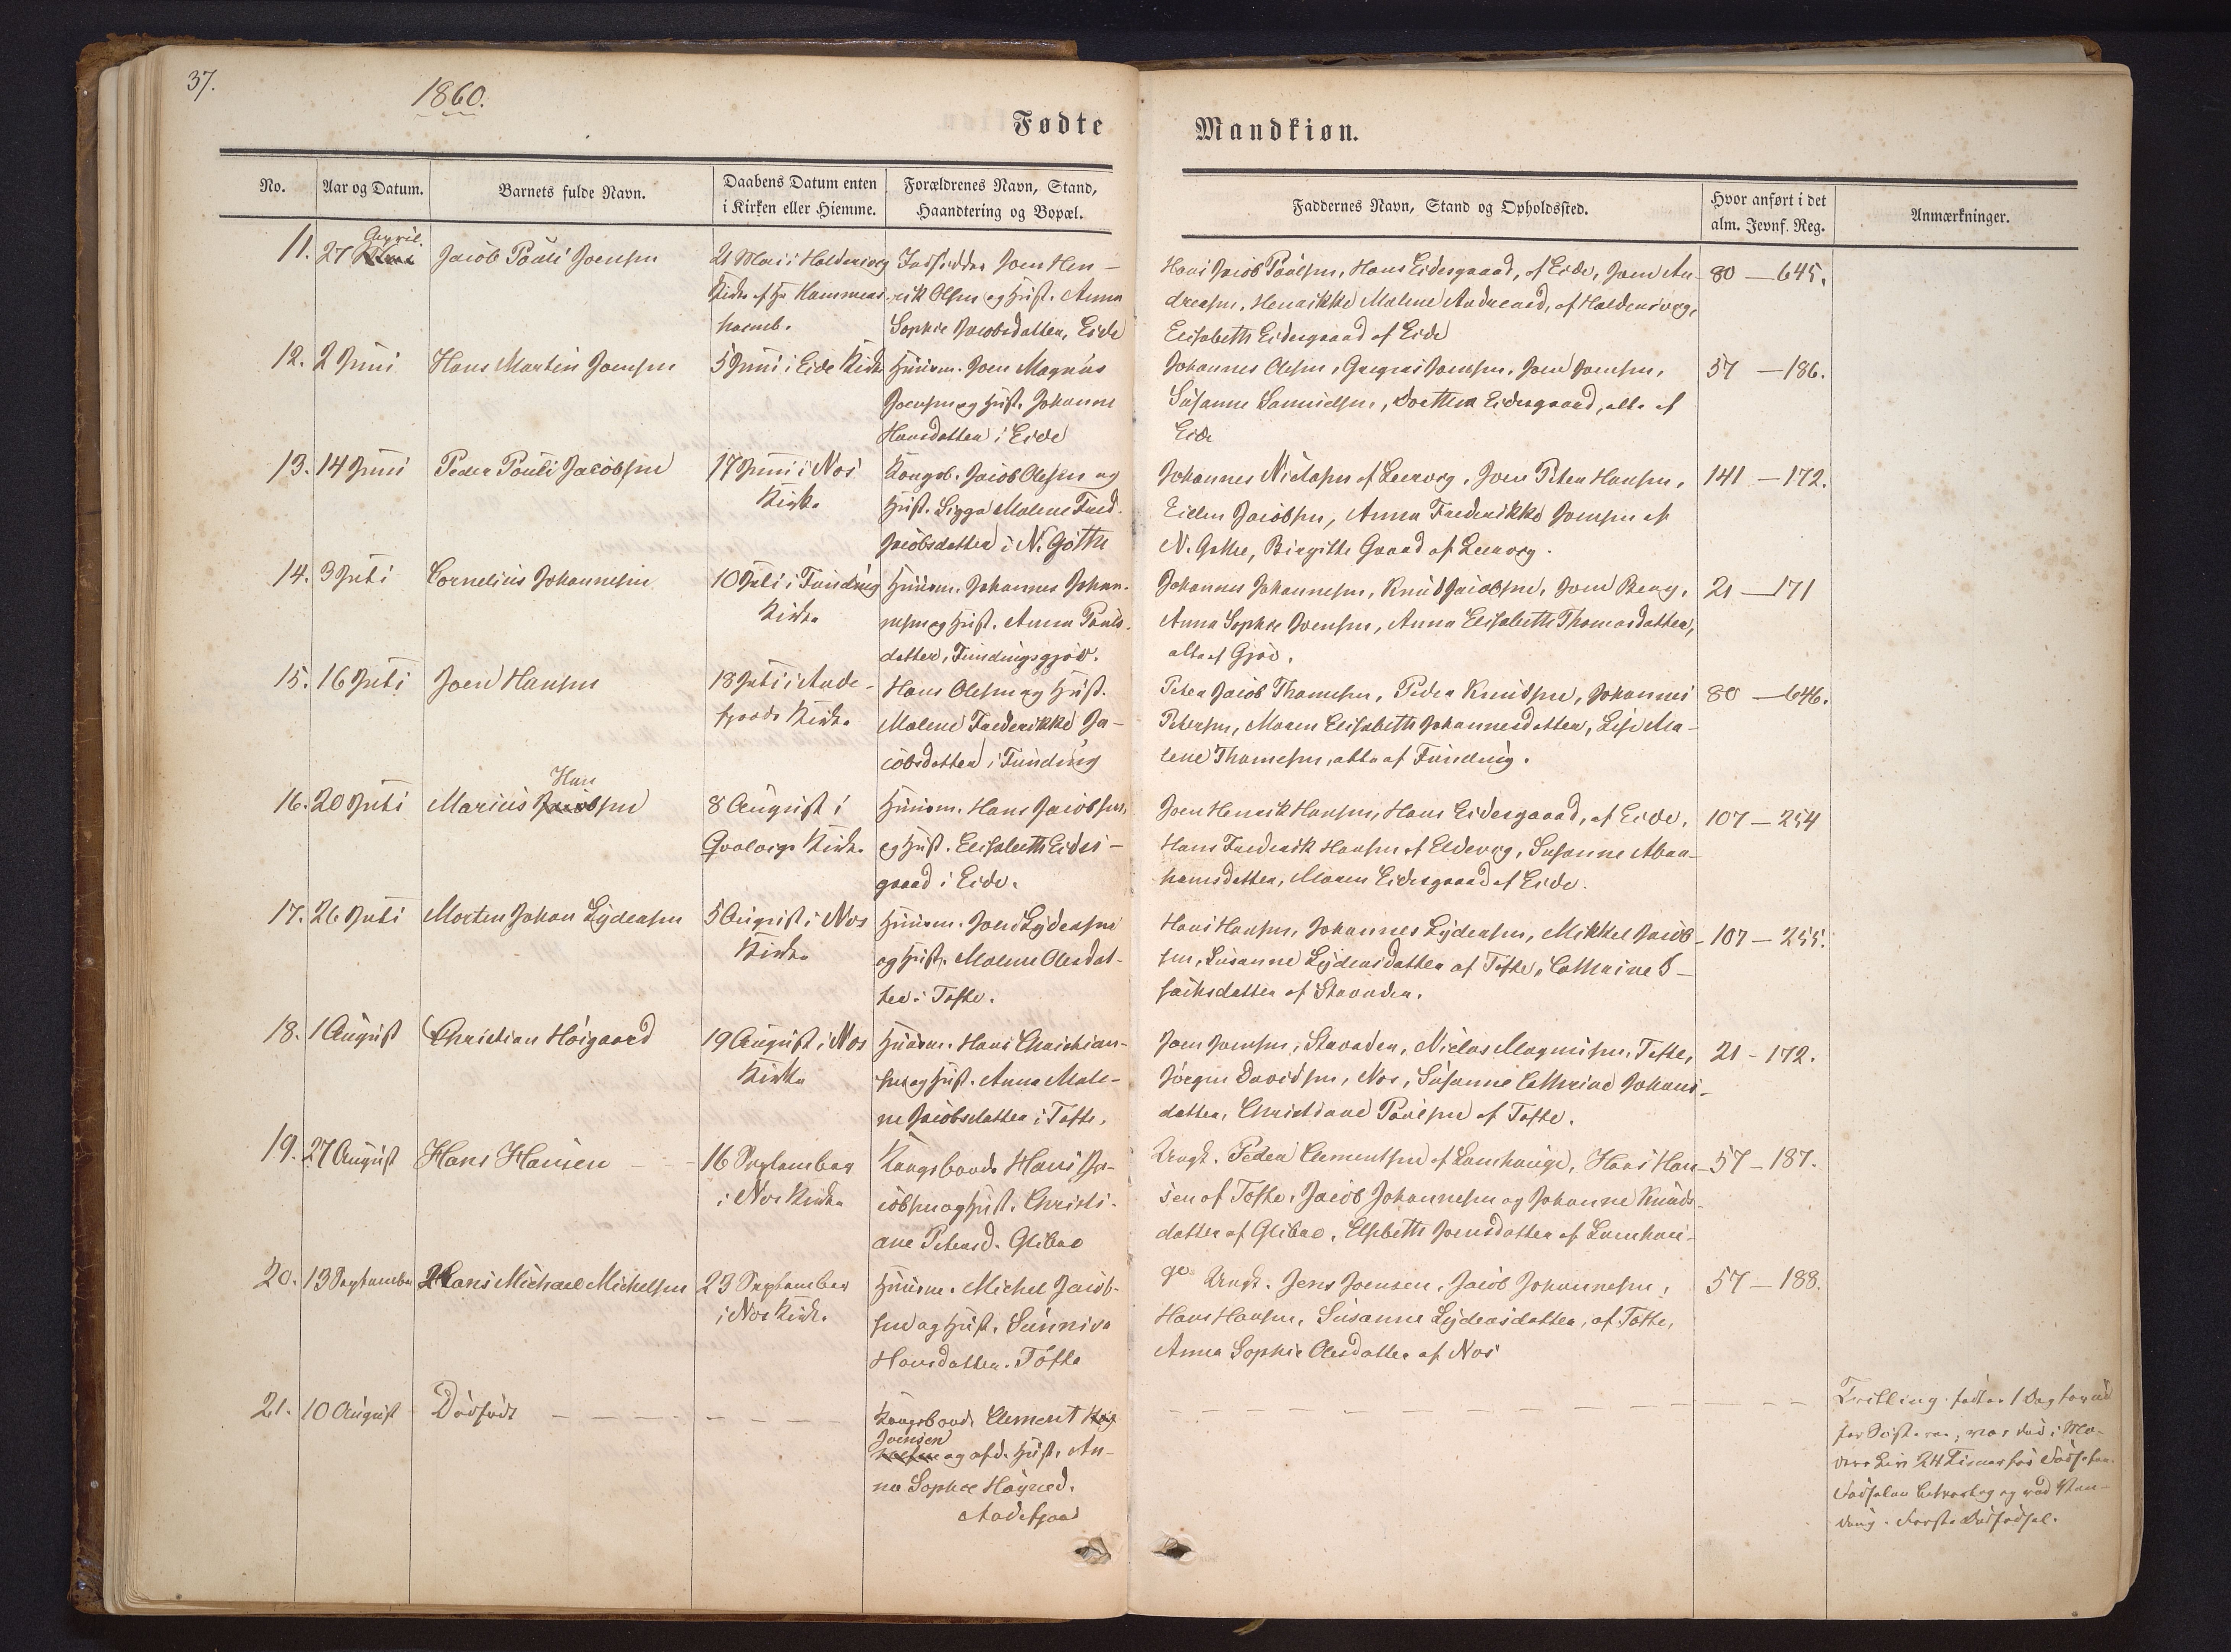 37.
1860.
Fødte
Mandkiøn.
No.
Aar og Datum.
Barnets fulde Navn.
Daabens Datum enten
i Kirken eller Hiemme.
Forældrenes Navn, Stand,
Haandtering og Bopæl.
Faddernes Navn, Stand og Opholdssted.
Hvor anført i det
alm. Jevnf. Reg.
Anmærkninger.
11. 27 April Jacob Pauli Joensen
21 Mai i Haldersvig
Kirke af Hr Hammers
haimb.
Indsidder Joen Hen-
rik Olsen og Hust. Anna
Sophie Jacobsdatter, Eide
Hans Jacob Poulsen, Hans Eidesgaard, af Eide, Joen An-
dreasen, Henrikke Malene Andreasd, af Haldersvig,
Elisabeth Eidesgaard af Eide
80 — 645.
12. 2 Juni Hans Martin Joensen
5 Juni i Eide Kirke
Huusm. Joen Magnus
Joensen og Hust. Johanne
Hansdatter i Eide
Johannes Olsen, Joensen, Joen Joensen,
Susanne Samuelsen, Dorthea Eidesgaard, alle af
Eide
57 — 186.
13. 14 Juni Peder Pouli Jacobsen
17 Juni i Nos
Kirke
Kongsb. Jacob Olesen og
Hust. Sigga Malene Fred.
Jacobsdatter i N. Gøthe
Johannes Niclasen af Leervig, Joen Peter Hansen,
Eillen Jacobsen, Anna Frederikke Joensen af
N. Gøthe, Birgitte Gaard af Leervig.
141 — 172.
14. 3 Juli Cornelius Johannesen
10 Juli i Funding
Kirke
Huusm. Johannes Johan-
nesen og Hust. Anna Pouls-
datter, Fundingsgjov.
Johannes Johannesen, Knud Jacobsen, Joen Berg,
Anna Sophie Joensen, Anna Elisabeth Thomasdatter,
alle af Gjov.
21 — 171
15. 16 Juli Joen Hansen
18 Juli i Ande-
fjords Kirke
Hans Olesen og Hust.
Malene Frederikke Ja-
cobsdatter i Funding
Peter Jacob Thomesen, Peder Knudsen, Johannes
Petersen, Maren Elisabeth Johannesdatter, Lise Ma-
lene Thomesen, alle af Funding.
80 — 646.
16. 20 Juli Marius Hansen
8 August i
Qvalvigs Kirke
Huusm. Hans Jacobsen,
og Hust. Elisabeth Eides-
gaard i Eide.
Joen Henrik Hansen, Hans Eidesgaard, af Eide,
Hans Frederik Hansen af Eldevig, Susanne Abra-
hamsdatter, Maren Eidesgaard af Eide.
107 — 254
17. 26 Juli Morten Johan Lydersen
5 August i Nos
Kirke
Huusm. Joen Lydersen
og Hust. Malene Olesdat-
ter i Tofte.
Hans Hansen, Johannes Lydersen, Mikkel Jacob-
sen, Susanne Lydersdatter af Tofte, Cathrine I-
saksdatter af Stranden.
107 — 255.
18. 1 August Christian Høigaard
19 August i Nos
Kirke
Huusm. Hans Christian-
sen og Hust. Anna Male-
ne Jacobsdatter i Tofte.
Joen Joensen, Stranden, Niclas Magnusen, Tofte,
Jørgen Davidsen, Nos, Susanne Cathrine Johans-
datter, Christiane Poulsen af Tofte.
21 - 172.
19. 27 August Hans Hansen
16 September
i Nos Kirke
Kongsbonde Hans Ja-
cobsen og Hust. Christi-
ane Petersd. Glibre
Ungk. Peder Clementsen af Lamhauge, Hans Han-
sen af Tofte, Jacob Johannesen og Johanne Knuds-
datter af Glibre, Elsbeth Joensdatter af Lamhau-
ge
57 - 187.
20. 13 September Hans Michael Michelsen
23 September
i Nos Kirke
Huusm. Michel Jacob-
sen og Hust. Sunniva
Hansdatter. Tofte
Ungk. Jens Joensen, Jacob Johannesen,
Hans Hansen, Susanne Lydersdatter, af Tofte,
Anna Sophie Olesdatter af Nos
57 — 188.
21. 10 August Dødfødt
Kongsbonde Clement
Joensen
og afd. Hust. An-
na Sophie
Andefjord
Tvilling. født 1 Dag forud
for Søsteren; var død i Mo-
ders Liv 24 Timer før Fødselen.
Første Dødfødsel.